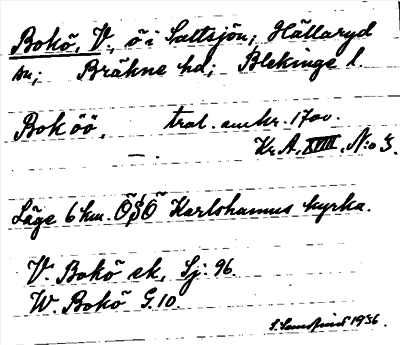 Bokö, V., ö i Saltsjön; Hällaryd
sn; Bräkne hd; Blekinge l.
Boköö, trol. omkr. 1700.
— . Kr.A. XVIII. N:o 3.
Läge 6 km. ÖSÖ Karlshamns kyrka.
V. Bokö ek, Sj. 96.
W. Bokö G.10.
1936.